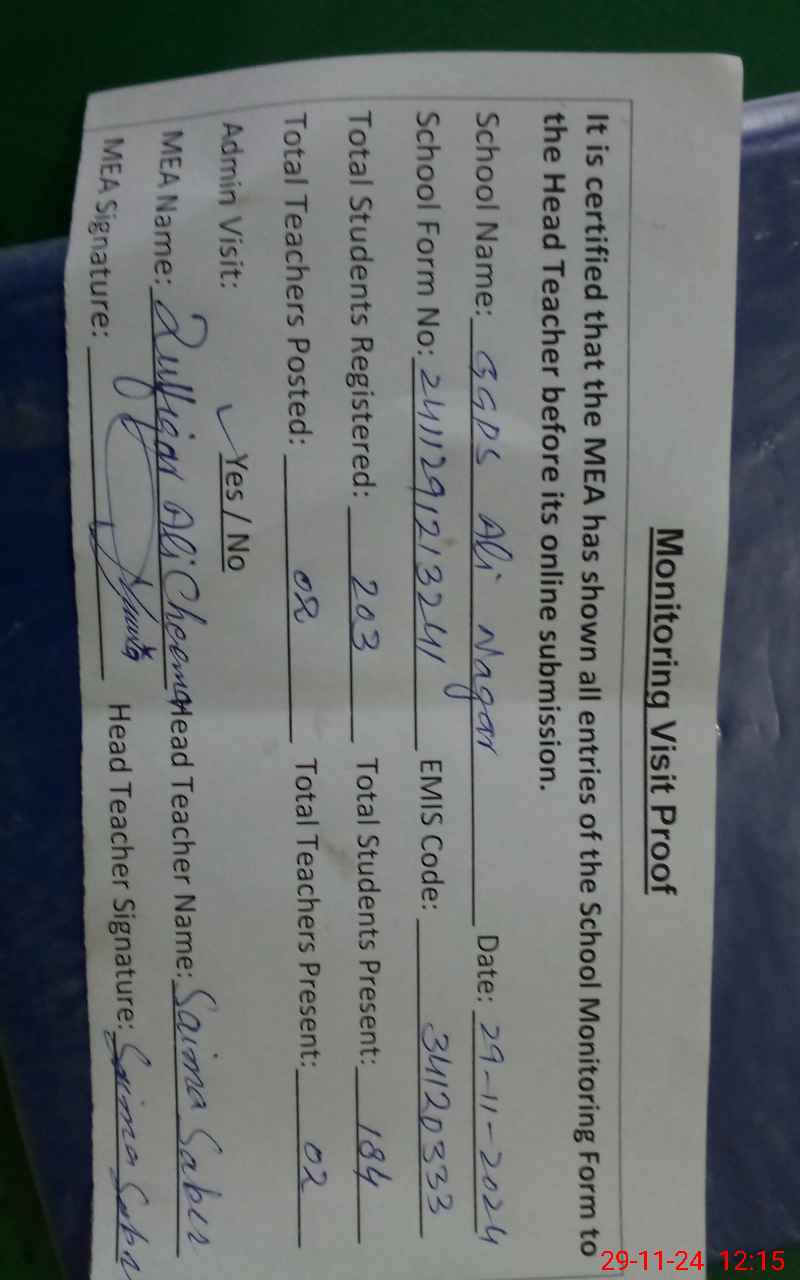 Monitoring Visit Proof
It is certified that the MEA has shown all entries of the School Monitoring Form to
the Head Teacher before its online submission.
School Name: GGPS Ali Nagar Date: 29-11-2024
School Form No: 2411291213241 EMIS Code: 34120333
Total Students Registered: 203 Total Students Present: 184
Total Teachers Posted: 02 Total Teachers Present: 02
Admin Visit: ✓ Yes / No
MEA Name: Zulfiqar Ali Cheema Head Teacher Name: Saima Saber
MEA Signature: Head Teacher Signature: Saima Saber
29-11-24 12:15